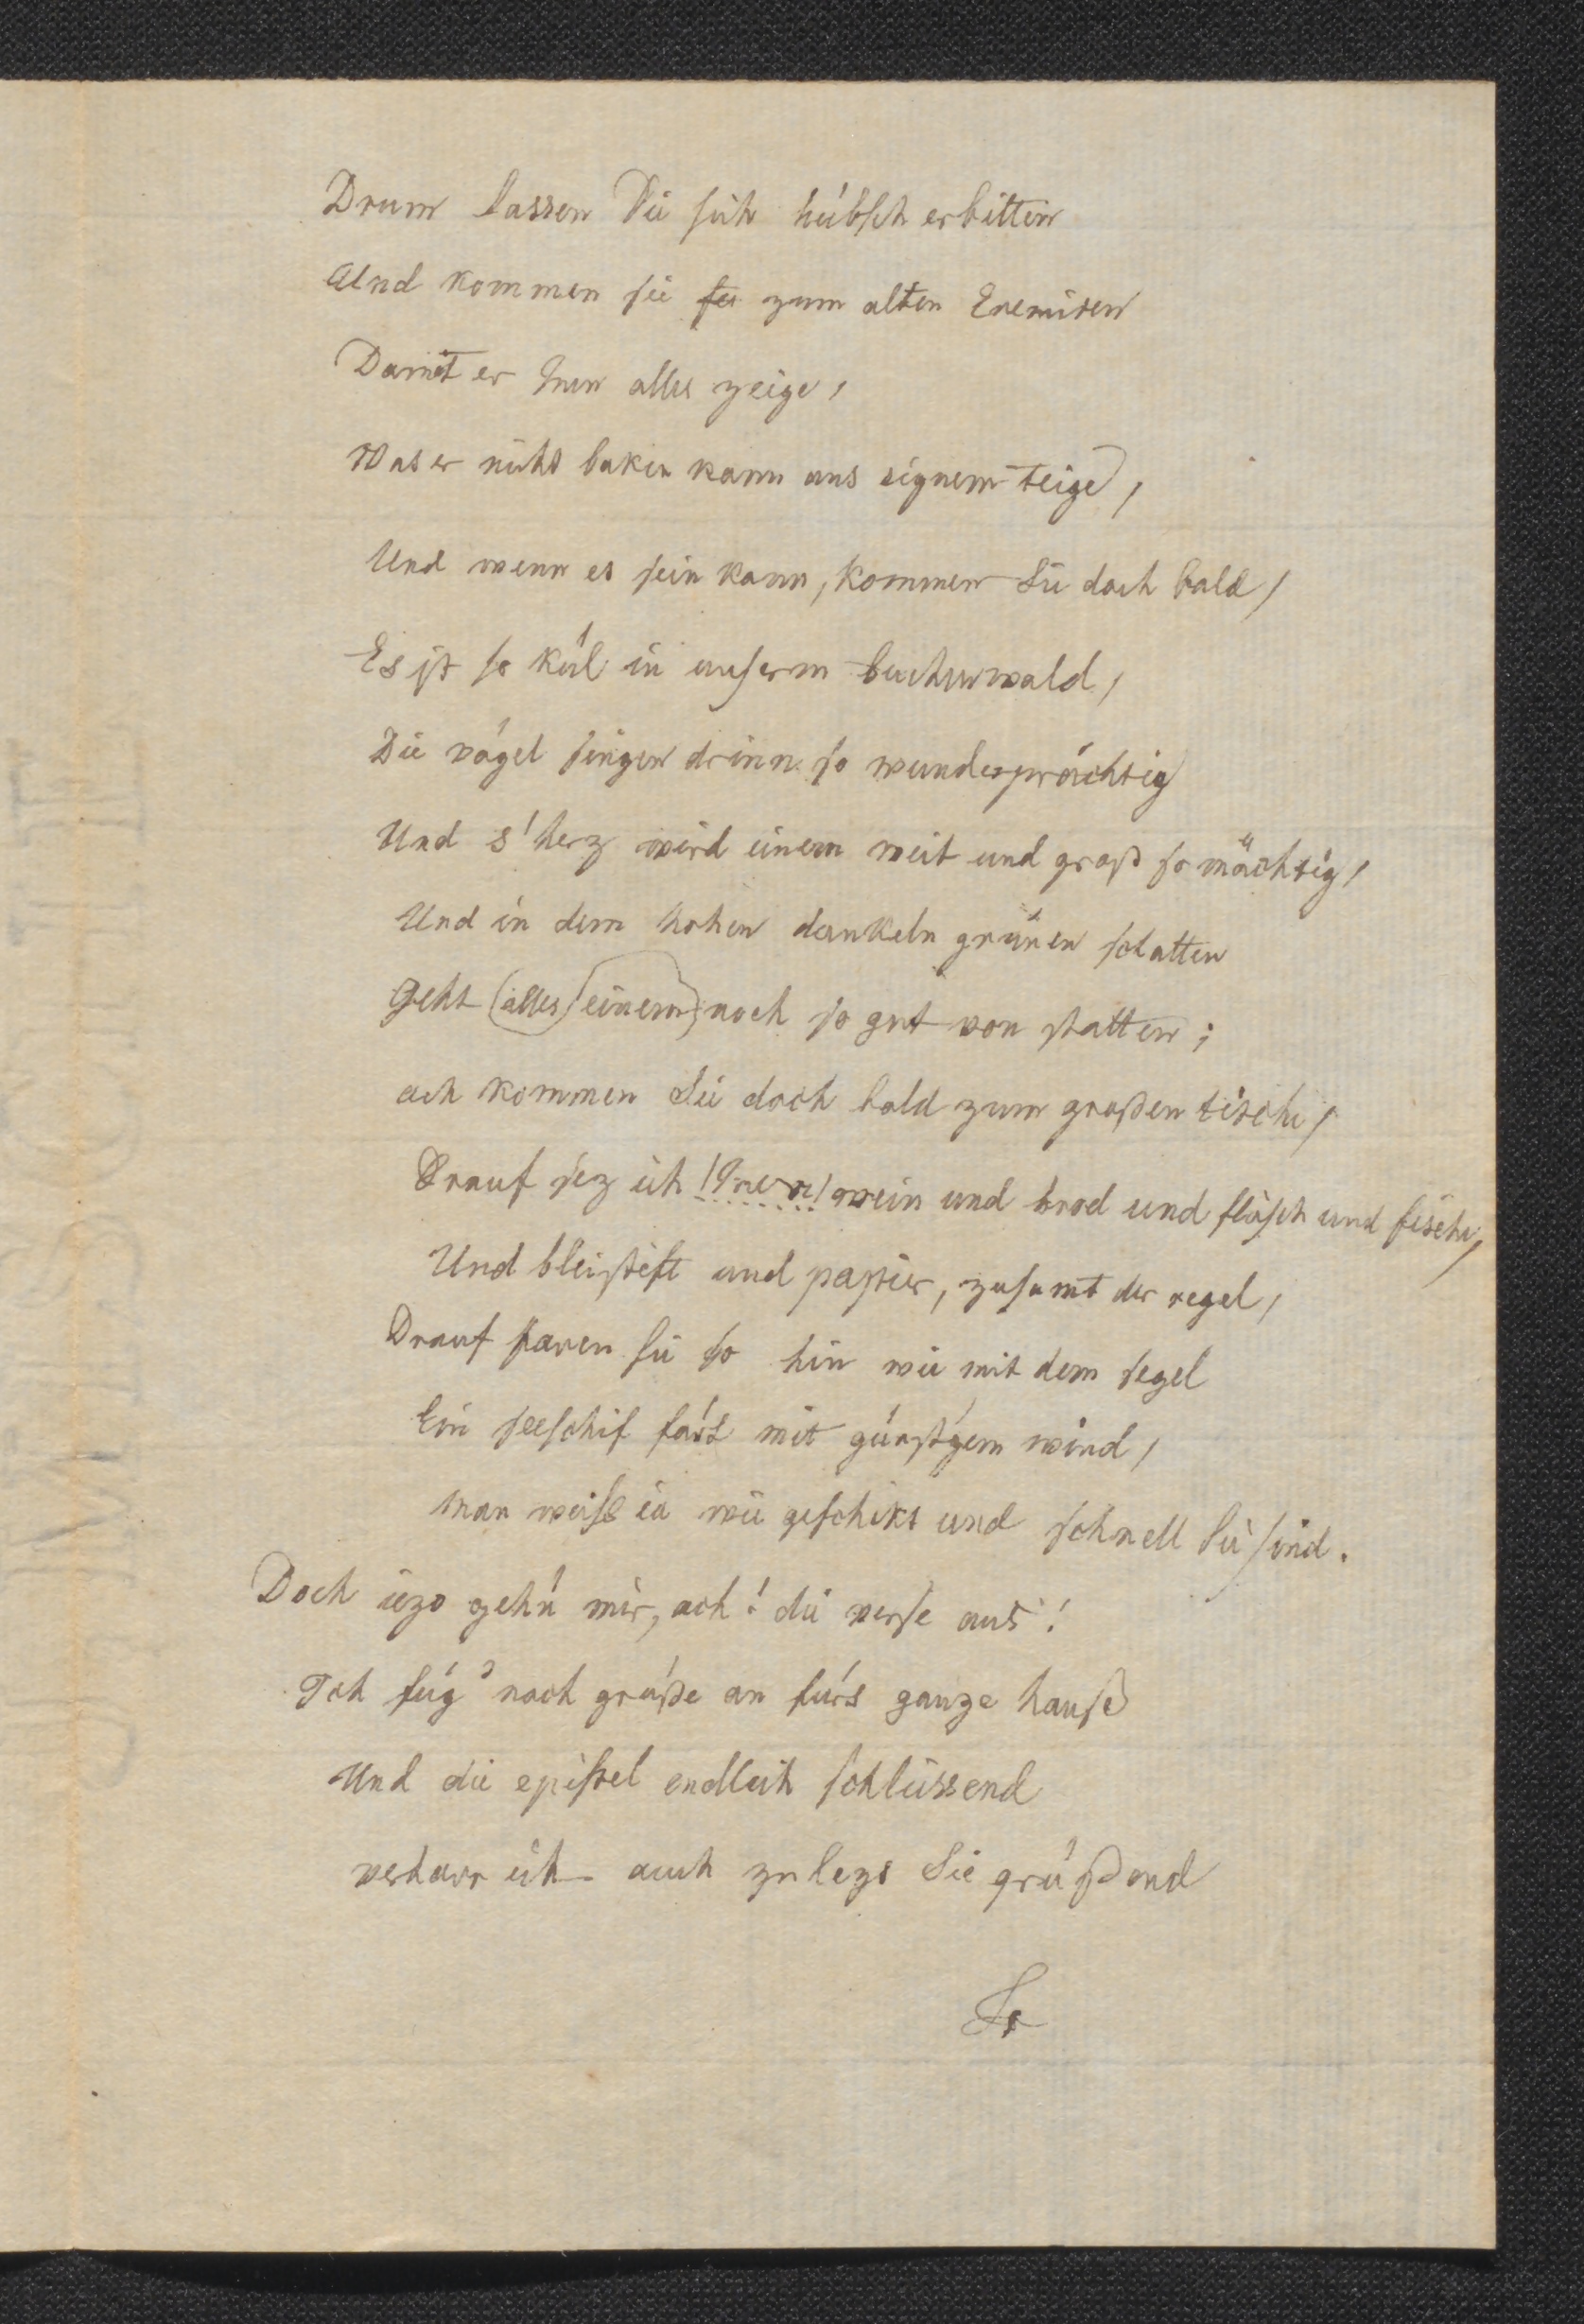 Drum lassen Sie sich hübsch erbitten
Und kommen sie zum alten Eremiten
Damit er Inen alles zeige,
Was er nicht baken kann aus eignem teige,
Und wenn es sein kann, kommen Sie doch bald,
Es ist so kül in unserm buchenwald,
Die vögel singen drinn so wunderprächtig
Und s'herz wird einem weit und groß so mächtig,
Und in dem hohen dunkeln grünen schatten
Geht (alles) (einem) noch so gut von statten;
ach kommen Sie doch bald zum großen tische,
Drauf sez ich Inen wein und brod und fleisch und fische,
Und bleistift und papier, zusamt der regel,
Drauf faren Sie so hin wie mit dem segel
Ein seeschif färt mit günst'gem wind,
man weiß ia wie geschikt und schnell Sie sind.
Doch iezo gehn mir, ach! die verse aus!
Ich füg' noch grüße an fürs ganze hauß
Und die epistel endlich schliessend
verharr ich auch zulezt Sie grüßend